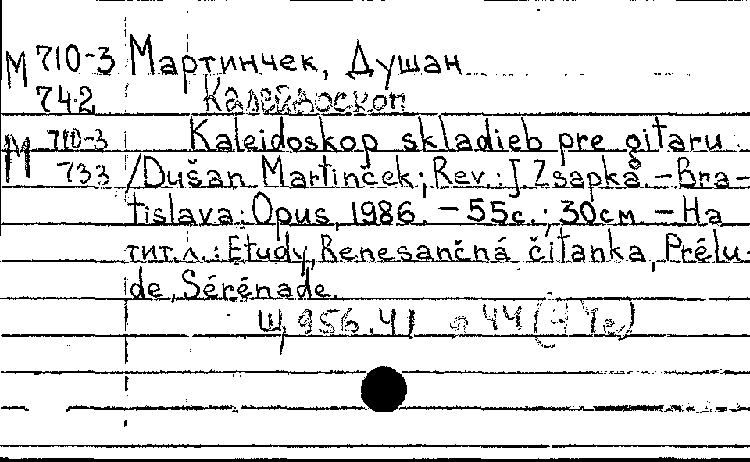 М 710-3 Мартинчек, Душан
742 Калейдоскоп
М 710-3 Kaleidoskop skladieb pre gitaru
733 /Dušan Martinček; Rev.: J. Zsapka. – Bra-
tislava: Opus, 1986. – 55с.; 30см. – На
тит.л.: Etudy, Renesančná čítanka, Prélu-
de, Sérénade.
Щ 956.41 я 44